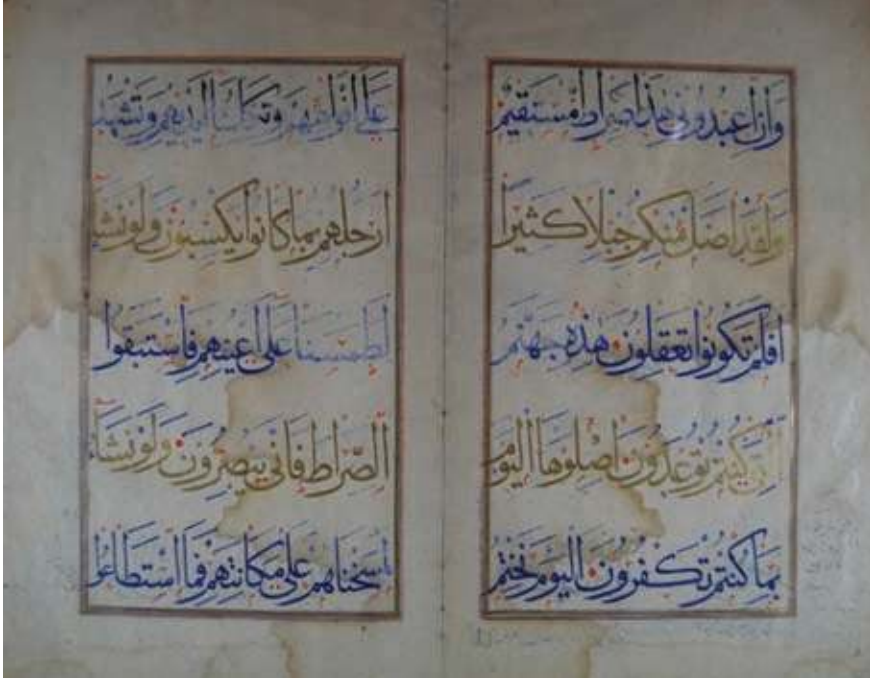 وَأَنِ اعْبُدُونِي هَذَا صِرَاطٌ مُسْتَقِيمٌ
وَلَقَدْ أَضَلَّ مِنْكُمْ جِبِلًّا كَثِيرًا
أَفَلَمْ تَكُونُوا تَعْقِلُونَ هَذِهِ جَهَنَّمُ
الَّتِي كُنْتُمْ تُوعَدُونَ اصْلَوْهَا الْيَوْمَ
بِمَا كُنْتُمْ تَكْفُرُونَ الْيَوْمَ نَخْتِمُ
عَلَى أَفْوَاهِهِمْ وَتُكَلِّمُنَا أَيْدِيهِمْ وَتَشْهَدُ
أَرْجُلُهُمْ بِمَا كَانُوا يَكْسِبُونَ وَلَوْ نَشَاءُ
لَطَمَسْنَا عَلَى أَعْيُنِهِمْ فَاسْتَبَقُوا
الصِّرَاطَ فَأَنَّى يُبْصِرُونَ وَلَوْ نَشَاءُ
لَمَسَخْنَاهُمْ عَلَى مَكَانَتِهِمْ فَمَا اسْتَطَاعُوا